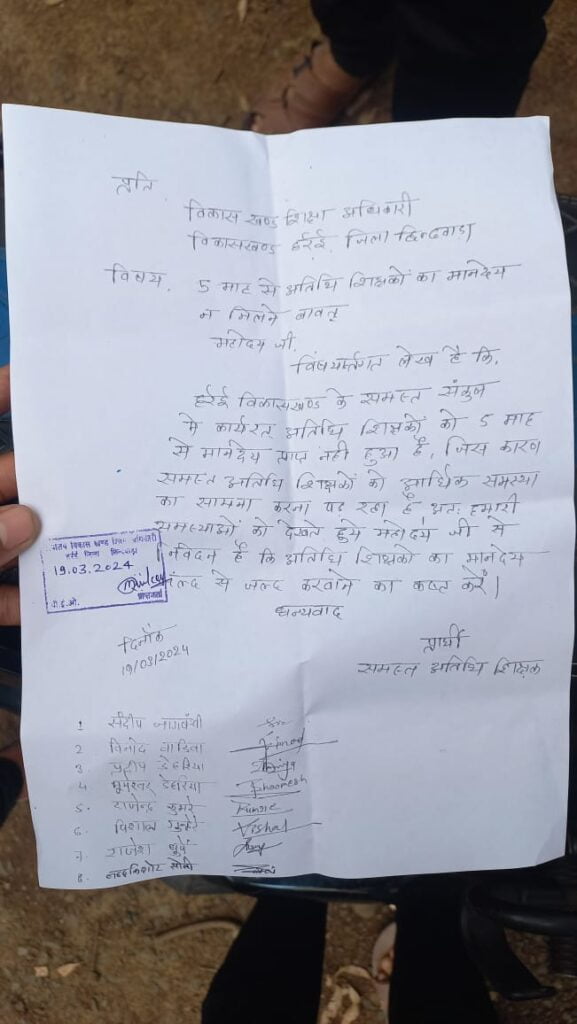 प्रति
विकास खण्ड शिक्षा अधिकारी
विकासखण्ड हर्रई, जिला छिन्दवाड़ा
विषय. 5 माह से अतिथि शिक्षकों का मानदेय
न मिलने बावत्
महोदय जी,
विषयांर्तगत लेख है कि,
हर्रई विकासखण्ड के समस्त संकुल
मे कार्यरत् अतिथि शिक्षकों को 5 माह
से मानदेय प्राप्त नही हुआ है, जिस कारण
समस्त अतिथि शिक्षकों को आर्थिक समस्या
का सामना करना पड रहा है अतः हमारी
समस्याओं को देखते हुये महोदय जी से
निवेदन है कि अतिथि शिक्षकों का मानदेय
जल्द से जल्द करवाने का कष्ट करें।
धन्यवाद
विकास खण्ड शिक्षा अधिकारी
हर्रई जिला छिन्दवाड़ा
19.03.2024
दिनाँक
19/03/2024
प्रार्थी
समस्त अतिथि शिक्षक
1 संदीप
2 विनोद
3 प्रदीप डेहरिया
4 भूमेश्वर डेहरिया Bhoomesh
5. राजेन्द्र कुमरे Kumre
6. विशाल Vishal
7. राजेश धुर्वे
8. नन्दकिशोर